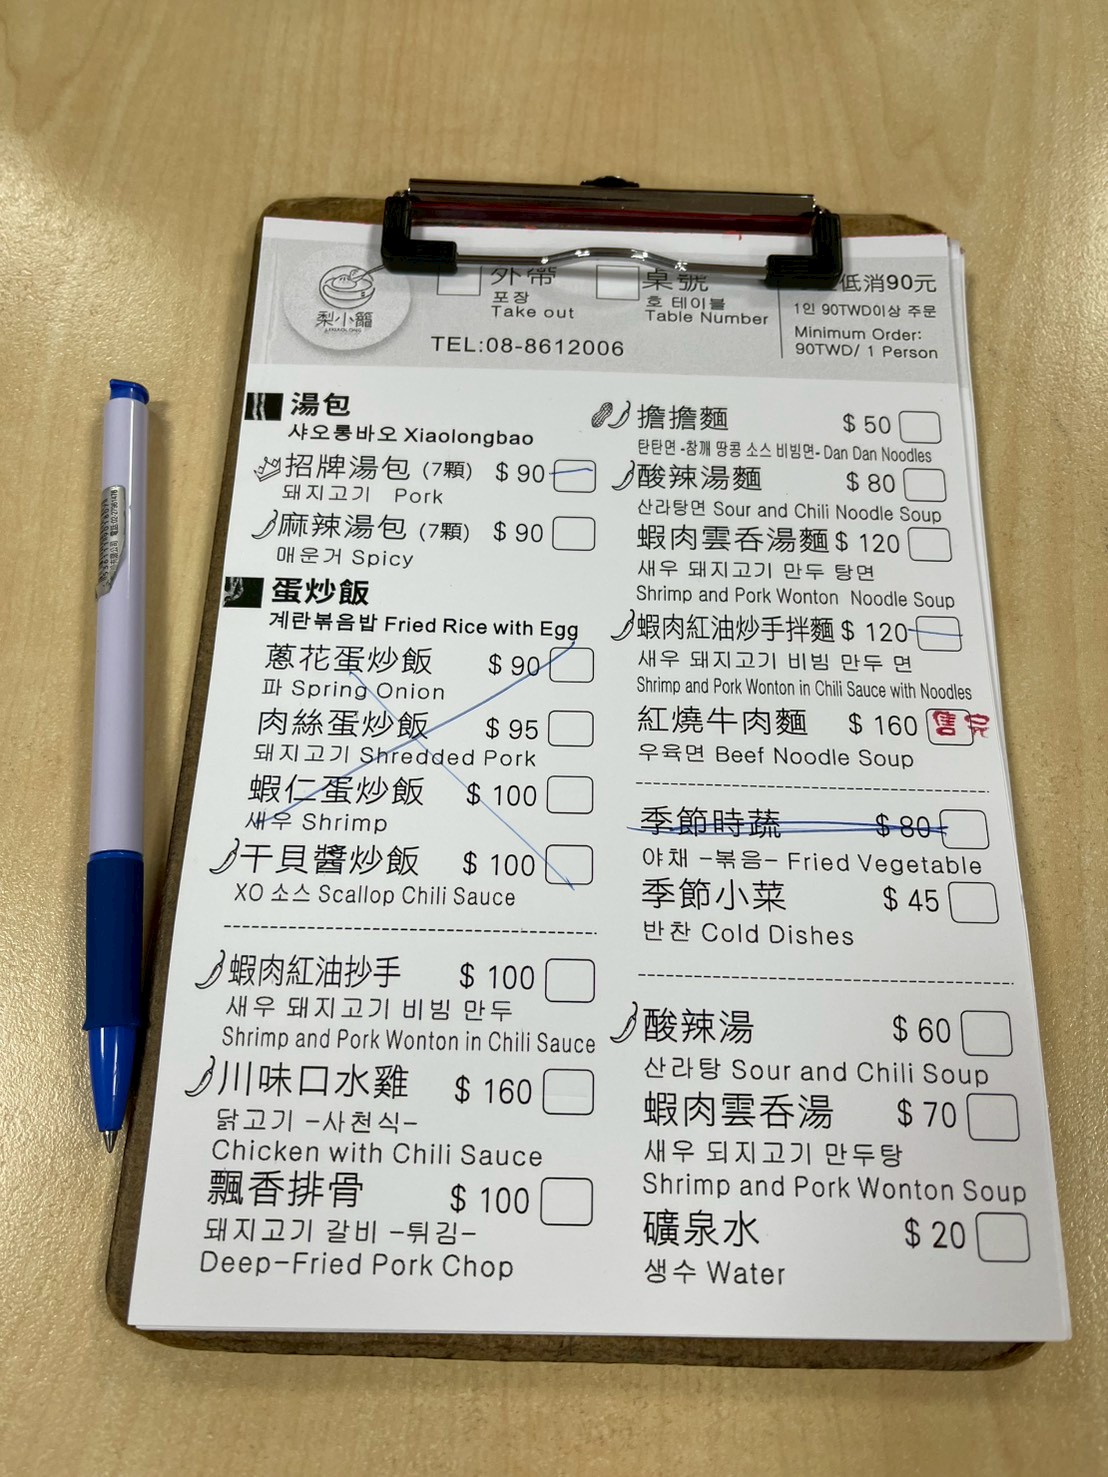 梨小籠
外帶
포장
Take out
桌號
호 테이블
Table Number
低消90元
1인 90TWD이상 주문
Minimum Order:
90TWD/ 1 Person
TEL:08-8612006
湯包
샤오롱바오 Xiaolongbao
招牌湯包 (7顆) $ 90
돼지고기 Pork
麻辣湯包 (7顆) $ 90
매운거 Spicy
蛋炒飯
계란볶음밥 Fried Rice with Egg
蔥花蛋炒飯 $ 90
파 Spring Onion
肉絲蛋炒飯 $ 95
돼지고기 Shredded Pork
蝦仁蛋炒飯 $ 100
새우 Shrimp
干貝醬炒飯 $ 100
XO 소스 Scallop Chili Sauce
蝦肉紅油抄手 $ 100
새우 돼지고기 비빔 만두
Shrimp and Pork Wonton in Chili Sauce
川味口水雞 $ 160
닭고기 -사천식-
Chicken with Chili Sauce
飄香排骨 $ 100
돼지고기 갈비 -튀김-
Deep-Fried Pork Chop
擔擔麵 $ 50
탄탄면 -참깨 땅콩 소스 비빔면- Dan Dan Noodles
酸辣湯麵 $ 80
산라탕면 Sour and Chili Noodle Soup
蝦肉雲吞湯麵 $ 120
새우 돼지고기 만두 탕면
Shrimp and Pork Wonton Noodle Soup
蝦肉紅油炒手拌麵 $ 120
새우 돼지고기 비빔 만두 면
Shrimp and Pork Wonton in Chili Sauce with Noodles
紅燒牛肉麵 $ 160 售完
우육면 Beef Noodle Soup
季節時蔬 $ 80
야채 -볶음- Fried Vegetable
季節小菜 $ 45
반찬 Cold Dishes
酸辣湯 $ 60
산라탕 Sour and Chili Soup
蝦肉雲吞湯 $ 70
새우 되지고기 만두탕
Shrimp and Pork Wonton Soup
礦泉水 $ 20
생수 Water